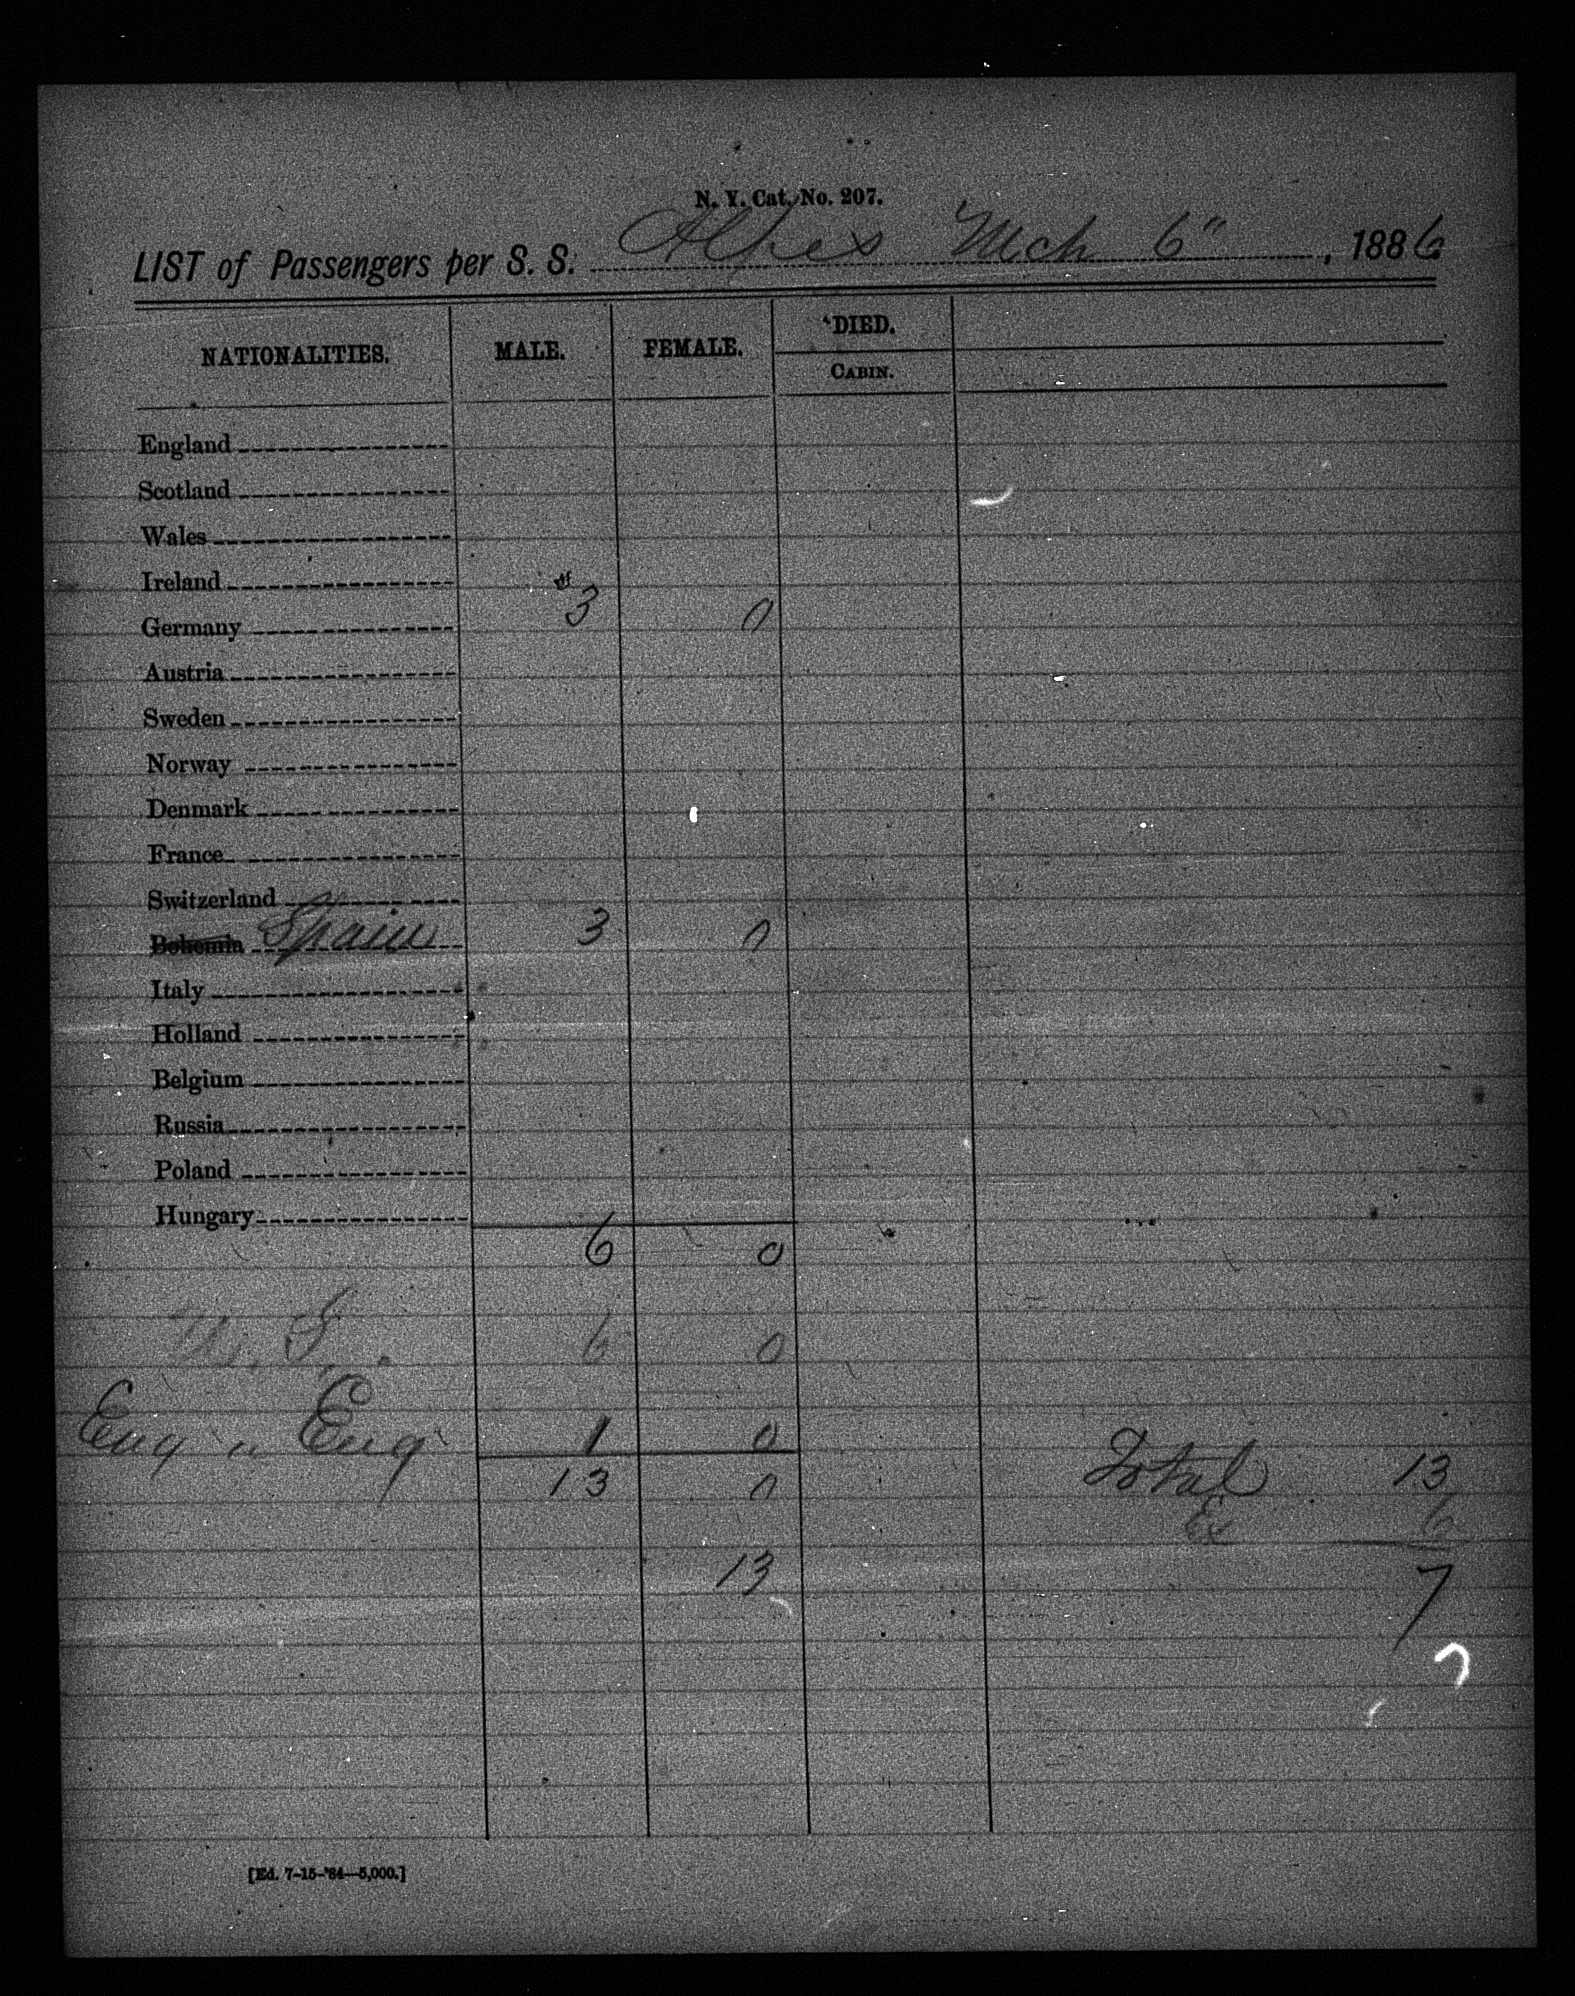 N. Y. Cat. No. 207.
LIST of Passengers per S. S. Alpes Mch 6", 1886
NATIONALITIES. MALE. FEMALE. DIED.
CABIN.
England
Scotland
Wales
Ireland
Germany 3 0
Austria
Sweden
Norway
Denmark
France
Switzerland
Bohemia Spain 3 0
Italy
Holland
Belgium
Russia
Poland
Hungary
6 0
U. S. 6 0
Eng " Eng 1 0
13 0 Total 13
Ex 6
13
7
[Ed. 7-15-'84—5,000.]